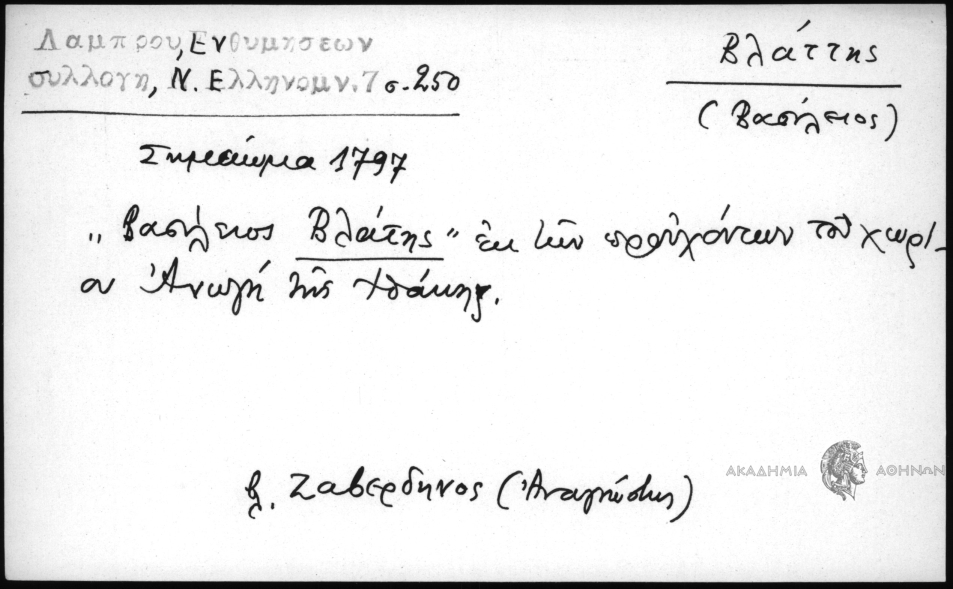 Λαμπρου, Ενθυμησεων
συλλογη, Ν. Ελληνομν. 7 σ. 250
Βλάττης
(Βασίλειος)
Σημείωμα 1797
„Βασίλειος Βλάτης" ἐκ τῶν προὐχόντων τοῦ χωρί-
ου Ἀνωγή τῆς Ἰθάκης.
βλ. Ζαβερδηνος (Ἀναγνώστης)
ΑΚΑΔΗΜΙΑ ΑΘΗΝΩΝ